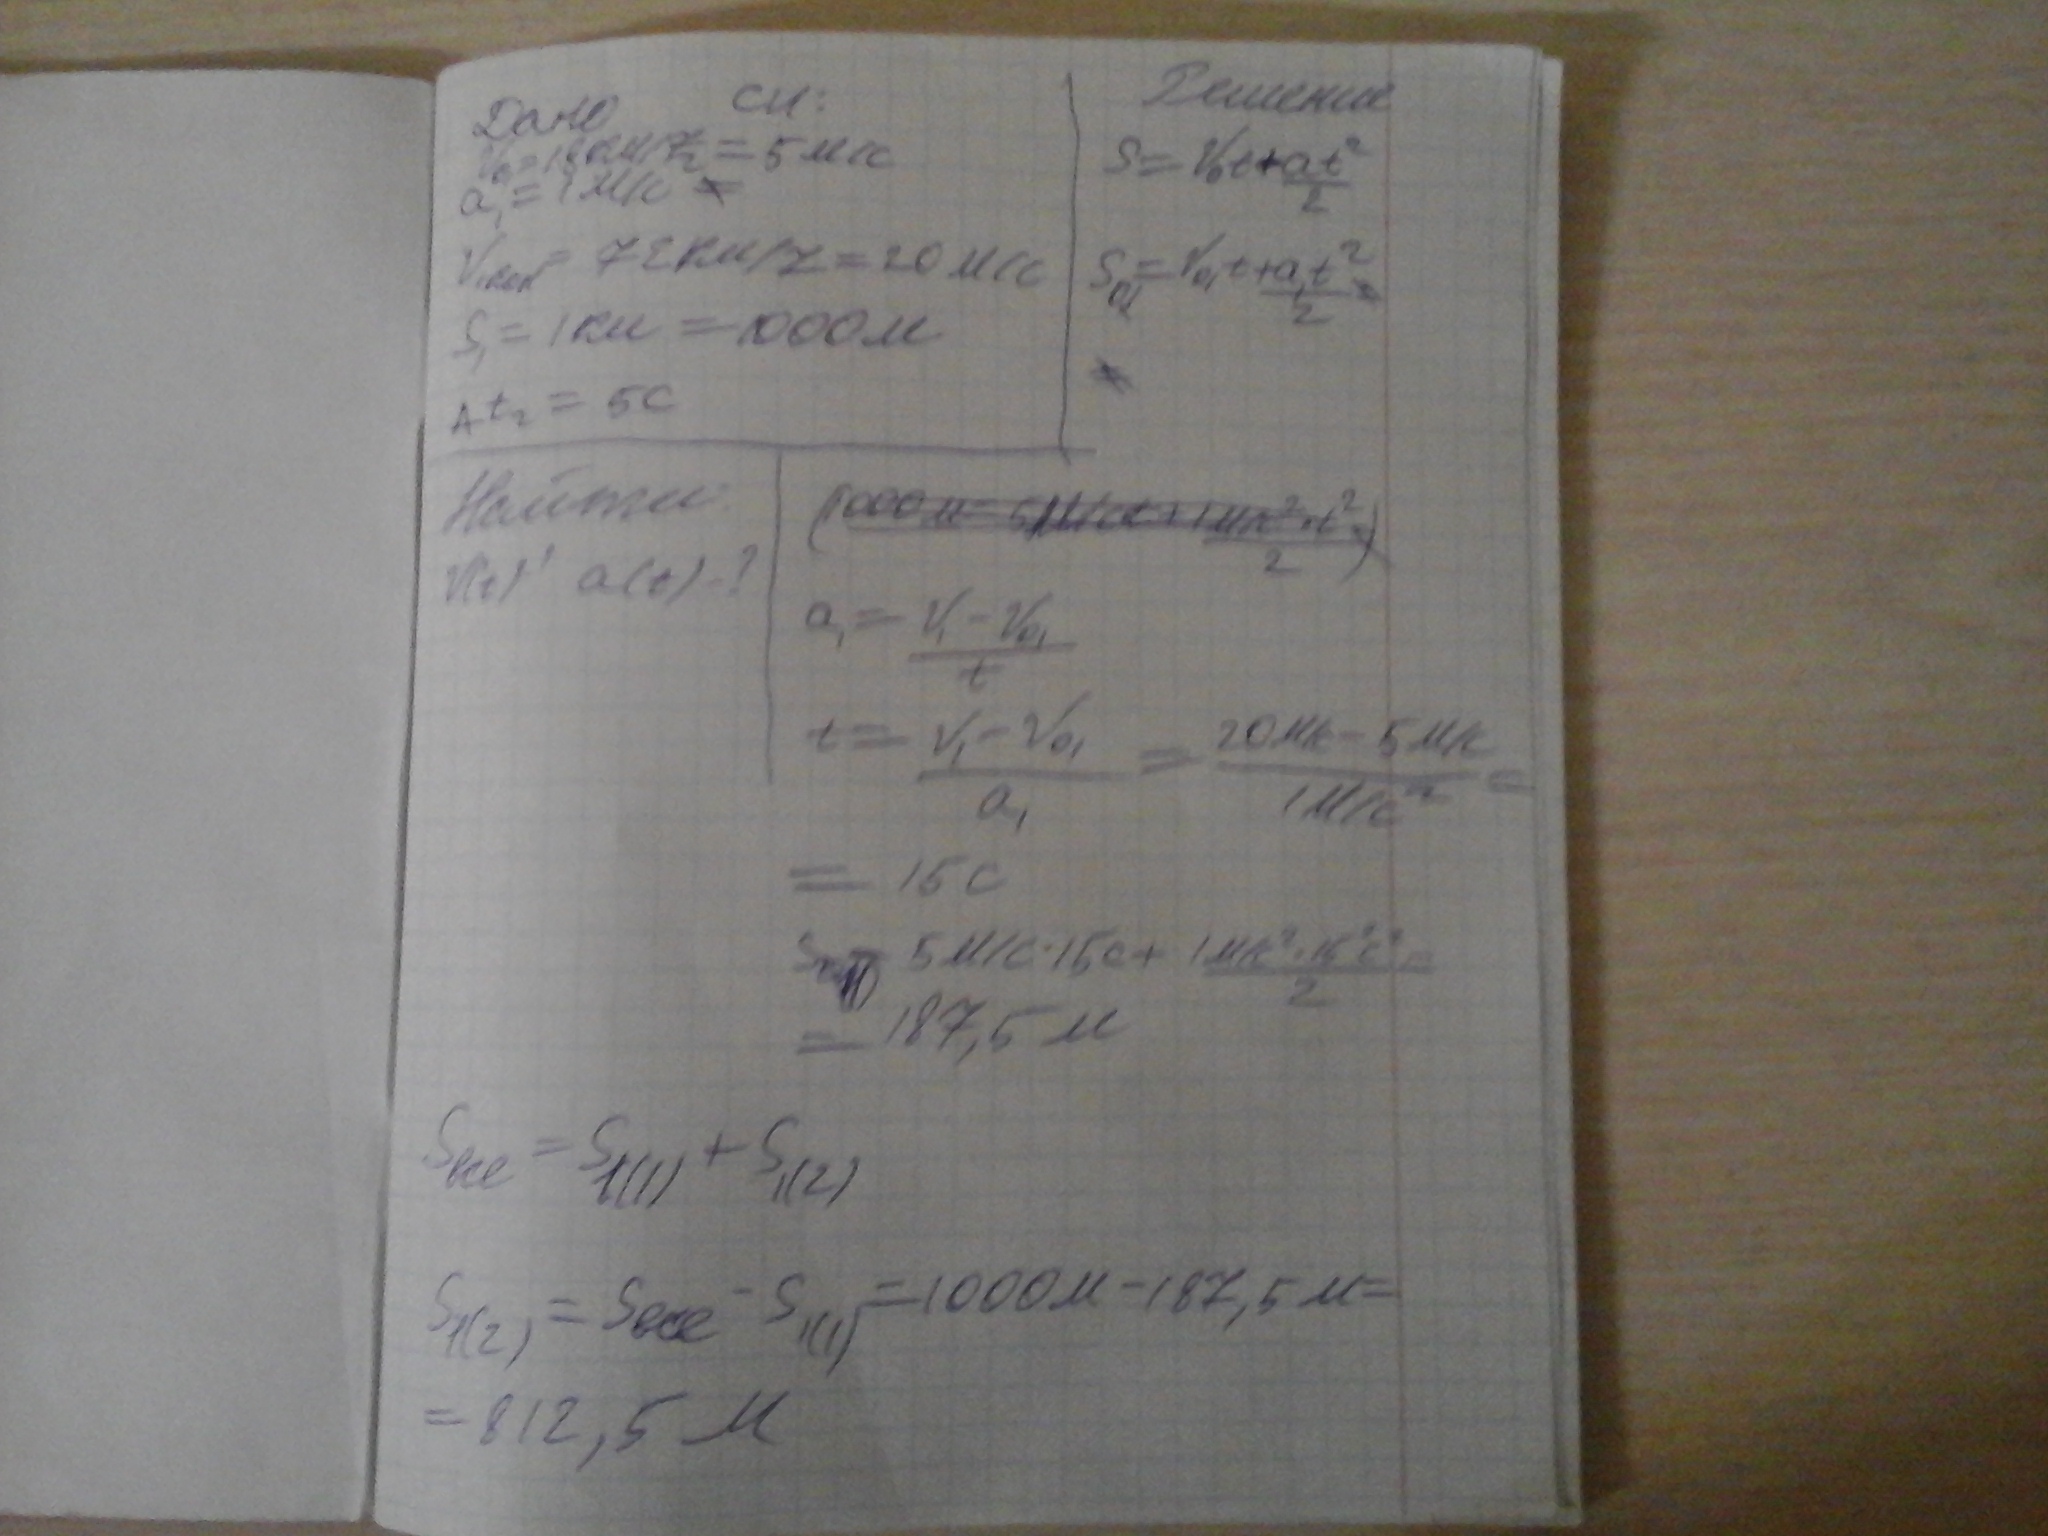 Дано СИ:
V₀ = 18 км/ч = 5 м/с
a₁ = 1 м/с
V₁кон = 72 км/ч = 20 м/с
S₁ = 1 км = 1000 м
Δt₂ = 5 с
Найти:
V(t)' a(t) - ?
Решение
S = V₀t + at²/2
S = V₀₁t + a₁t²/2 =
(1000 м = 5 м/с t + 1 м/с² · t²/2)
a₁ = V₁ - V₀₁/t
t = V₁ - V₀₁/a₁ = 20 м/с - 5 м/с/1 м/с² =
= 15 с
S = 5 м/с · 15 с + 1 м/с² · 15² с²/2 =
= 187,5 м
Sвсе = S₁₍₁₎ + S₁₍₂₎
S₁₍₂₎ = Sвсе - S₁₍₁₎ = 1000 м - 187,5 м =
= 812,5 м